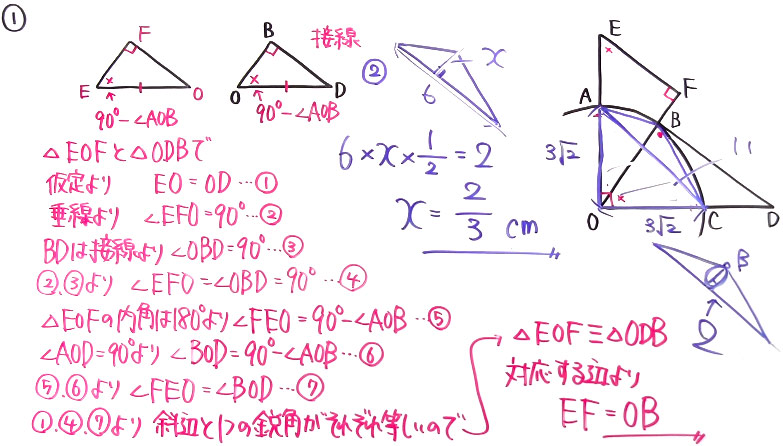 ①
F
E
O
90°-∠AOB
B
O
D
接線
90°-∠AOB
△EOFと△ODBで
仮定より EO=OD…①
垂線より ∠EFO=90°…②
BDは接線より∠OBD=90°…③
②,③より ∠EFO=∠OBD=90°…④
△EOFの内角は180°より∠FEO=90°-∠AOB…⑤
∠AOD=90°より ∠BOD=90°-∠AOB…⑥
⑤,⑥より ∠FEO=∠BOD…⑦
①,④,⑦より 斜辺と1つの鋭角がそれぞれ等しいので
△EOF≡△ODB
対応する辺より
EF=OB
②
x
6
6×x×1/2=2
x=2/3 cm
E
F
A
B
3√2
11
O
C
D
3√2
B
2